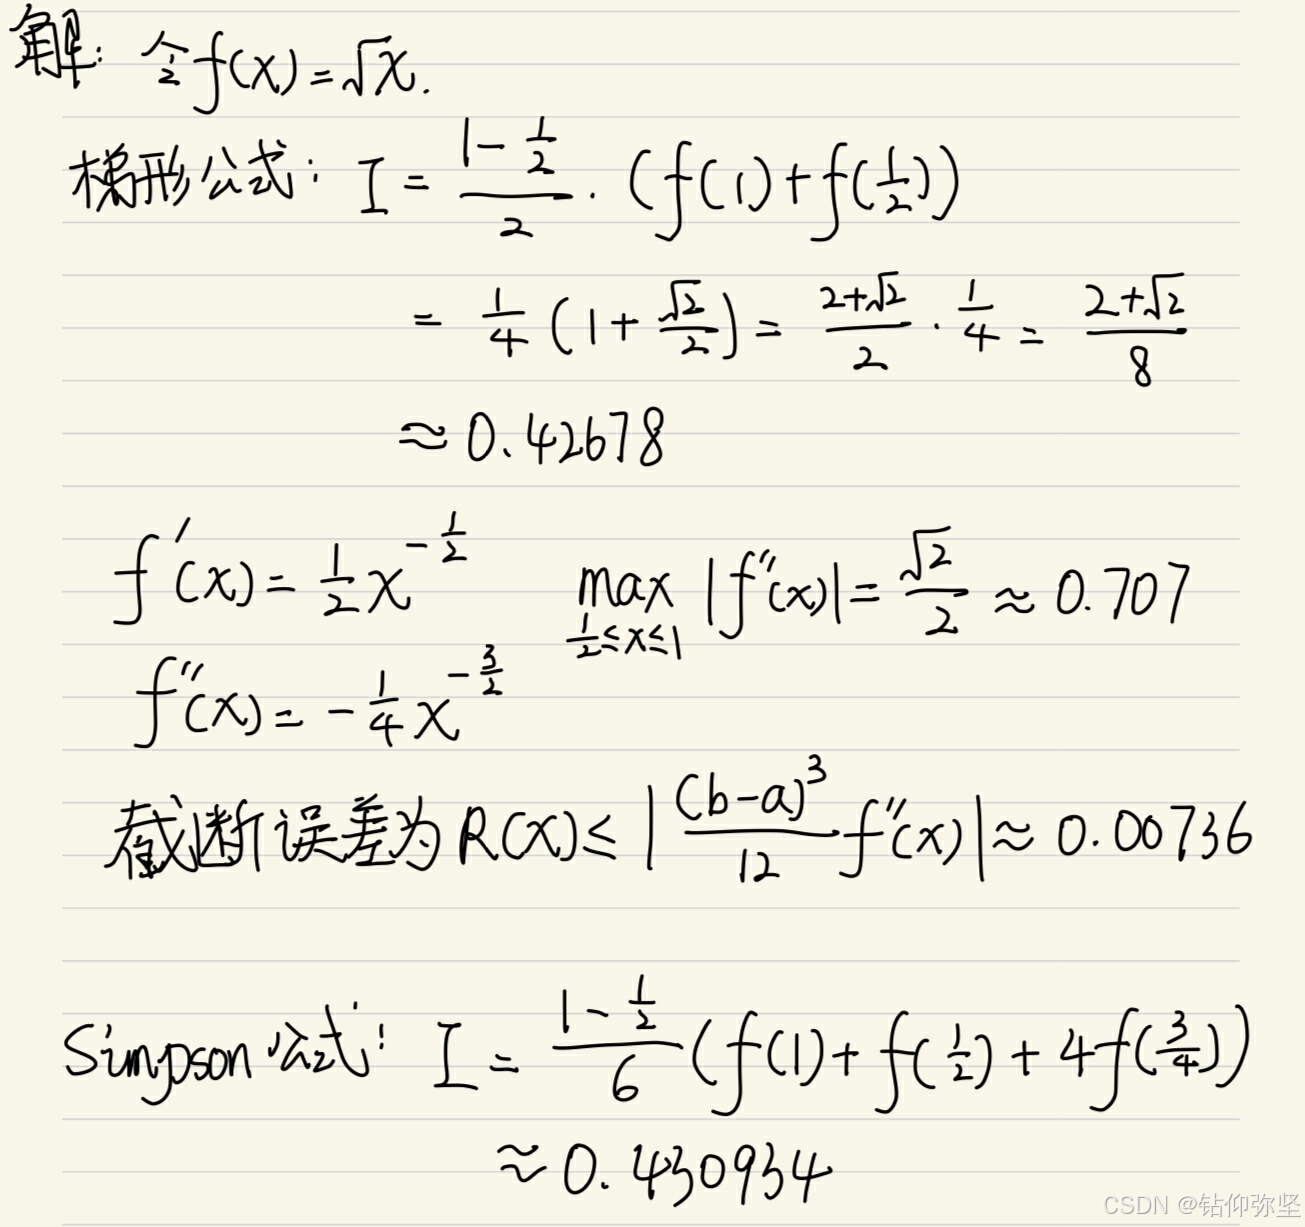 解: 令f(x)=√x.
梯形公式: I = (1-1/2)/2 · (f(1)+f(1/2))
= 1/4 (1+√2/2) = (2+√2)/2 · 1/4 = (2+√2)/8
≈0.42678
f'(x)=1/2 x^(-1/2)
max_{1/2≤x≤1} |f''(x)|=√2/2≈0.707
f''(x)=-1/4 x^(-3/2)
截断误差为 R(x)≤|(b-a)^3/12 f''(x)|≈0.00736
Simpson公式: I = (1-1/2)/6 (f(1)+f(1/2)+4f(3/4))
≈0.430934
CSDN @钻仰弥坚